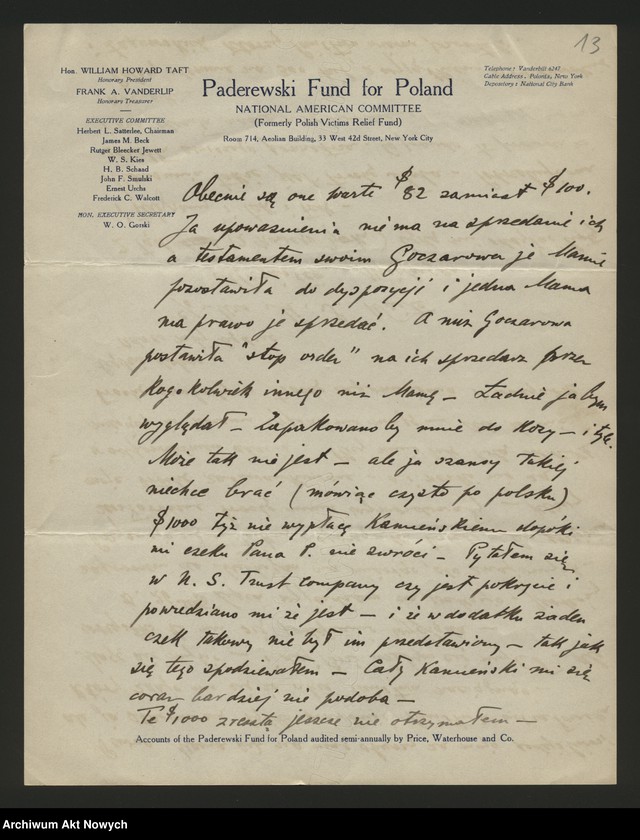 13
Hon. WILLIAM HOWARD TAFT
Honorary President
FRANK A. VANDERLIP
Honorary Treasurer
EXECUTIVE COMMITTEE
Herbert L. Satterlee, Chairman
James M. Beck
Rutger Bleecker Jewett
W. S. Kies
H. B. Schaad
John F. Smulski
Ernest Urchs
Frederick C. Walcott
HON. EXECUTIVE SECRETARY
W. O. Gorski
Paderewski Fund for Poland
NATIONAL AMERICAN COMMITTEE
(Formerly Polish Victims Relief Fund)
Room 714, Aeolian Building, 33 West 42d Street, New York City
Telephone: Vanderbilt 6247
Cable Address, Polonia, New York
Depository: National City Bank
Obecnie są one warte $82 zamiast $100.
Ja upoważnienia nie ma na sprzedanie ich
a testamentem swoim Goczarowa je Mamie
pozostawiła do dyspozycji i jedna Mama
ma prawo je sprzedać. A nuż Goczarowa
postawiła "stop order" na ich sprzedarz przez
kogokolwiek innego niż Mamę – Ładnie ja bym
wyglądał – Zapakowano by mnie do kozy – i tyle.
Może tak nie jest – ale ja szansy takiej
niechce brać (mówiąc czysto po polsku)
$1000 też nie wypłacę Kamieńskiemu dopóki
mi czeku Pana P. nie zwróci – Pytałem się
w N. S. Trust Company czy jest pokrycie i
powiedziano mi że jest – i że w dodatku żaden
czek takowy nie był im przedstawiony – tak jak
się tego spodziewałem – Cały Kamieński mi się
coraz bardziej nie podoba –
Te $1000 zresztą jeszcze nie otrzymałem –
Accounts of the Paderewski Fund for Poland audited semi-annually by Price, Waterhouse and Co.
Archiwum Akt Nowych